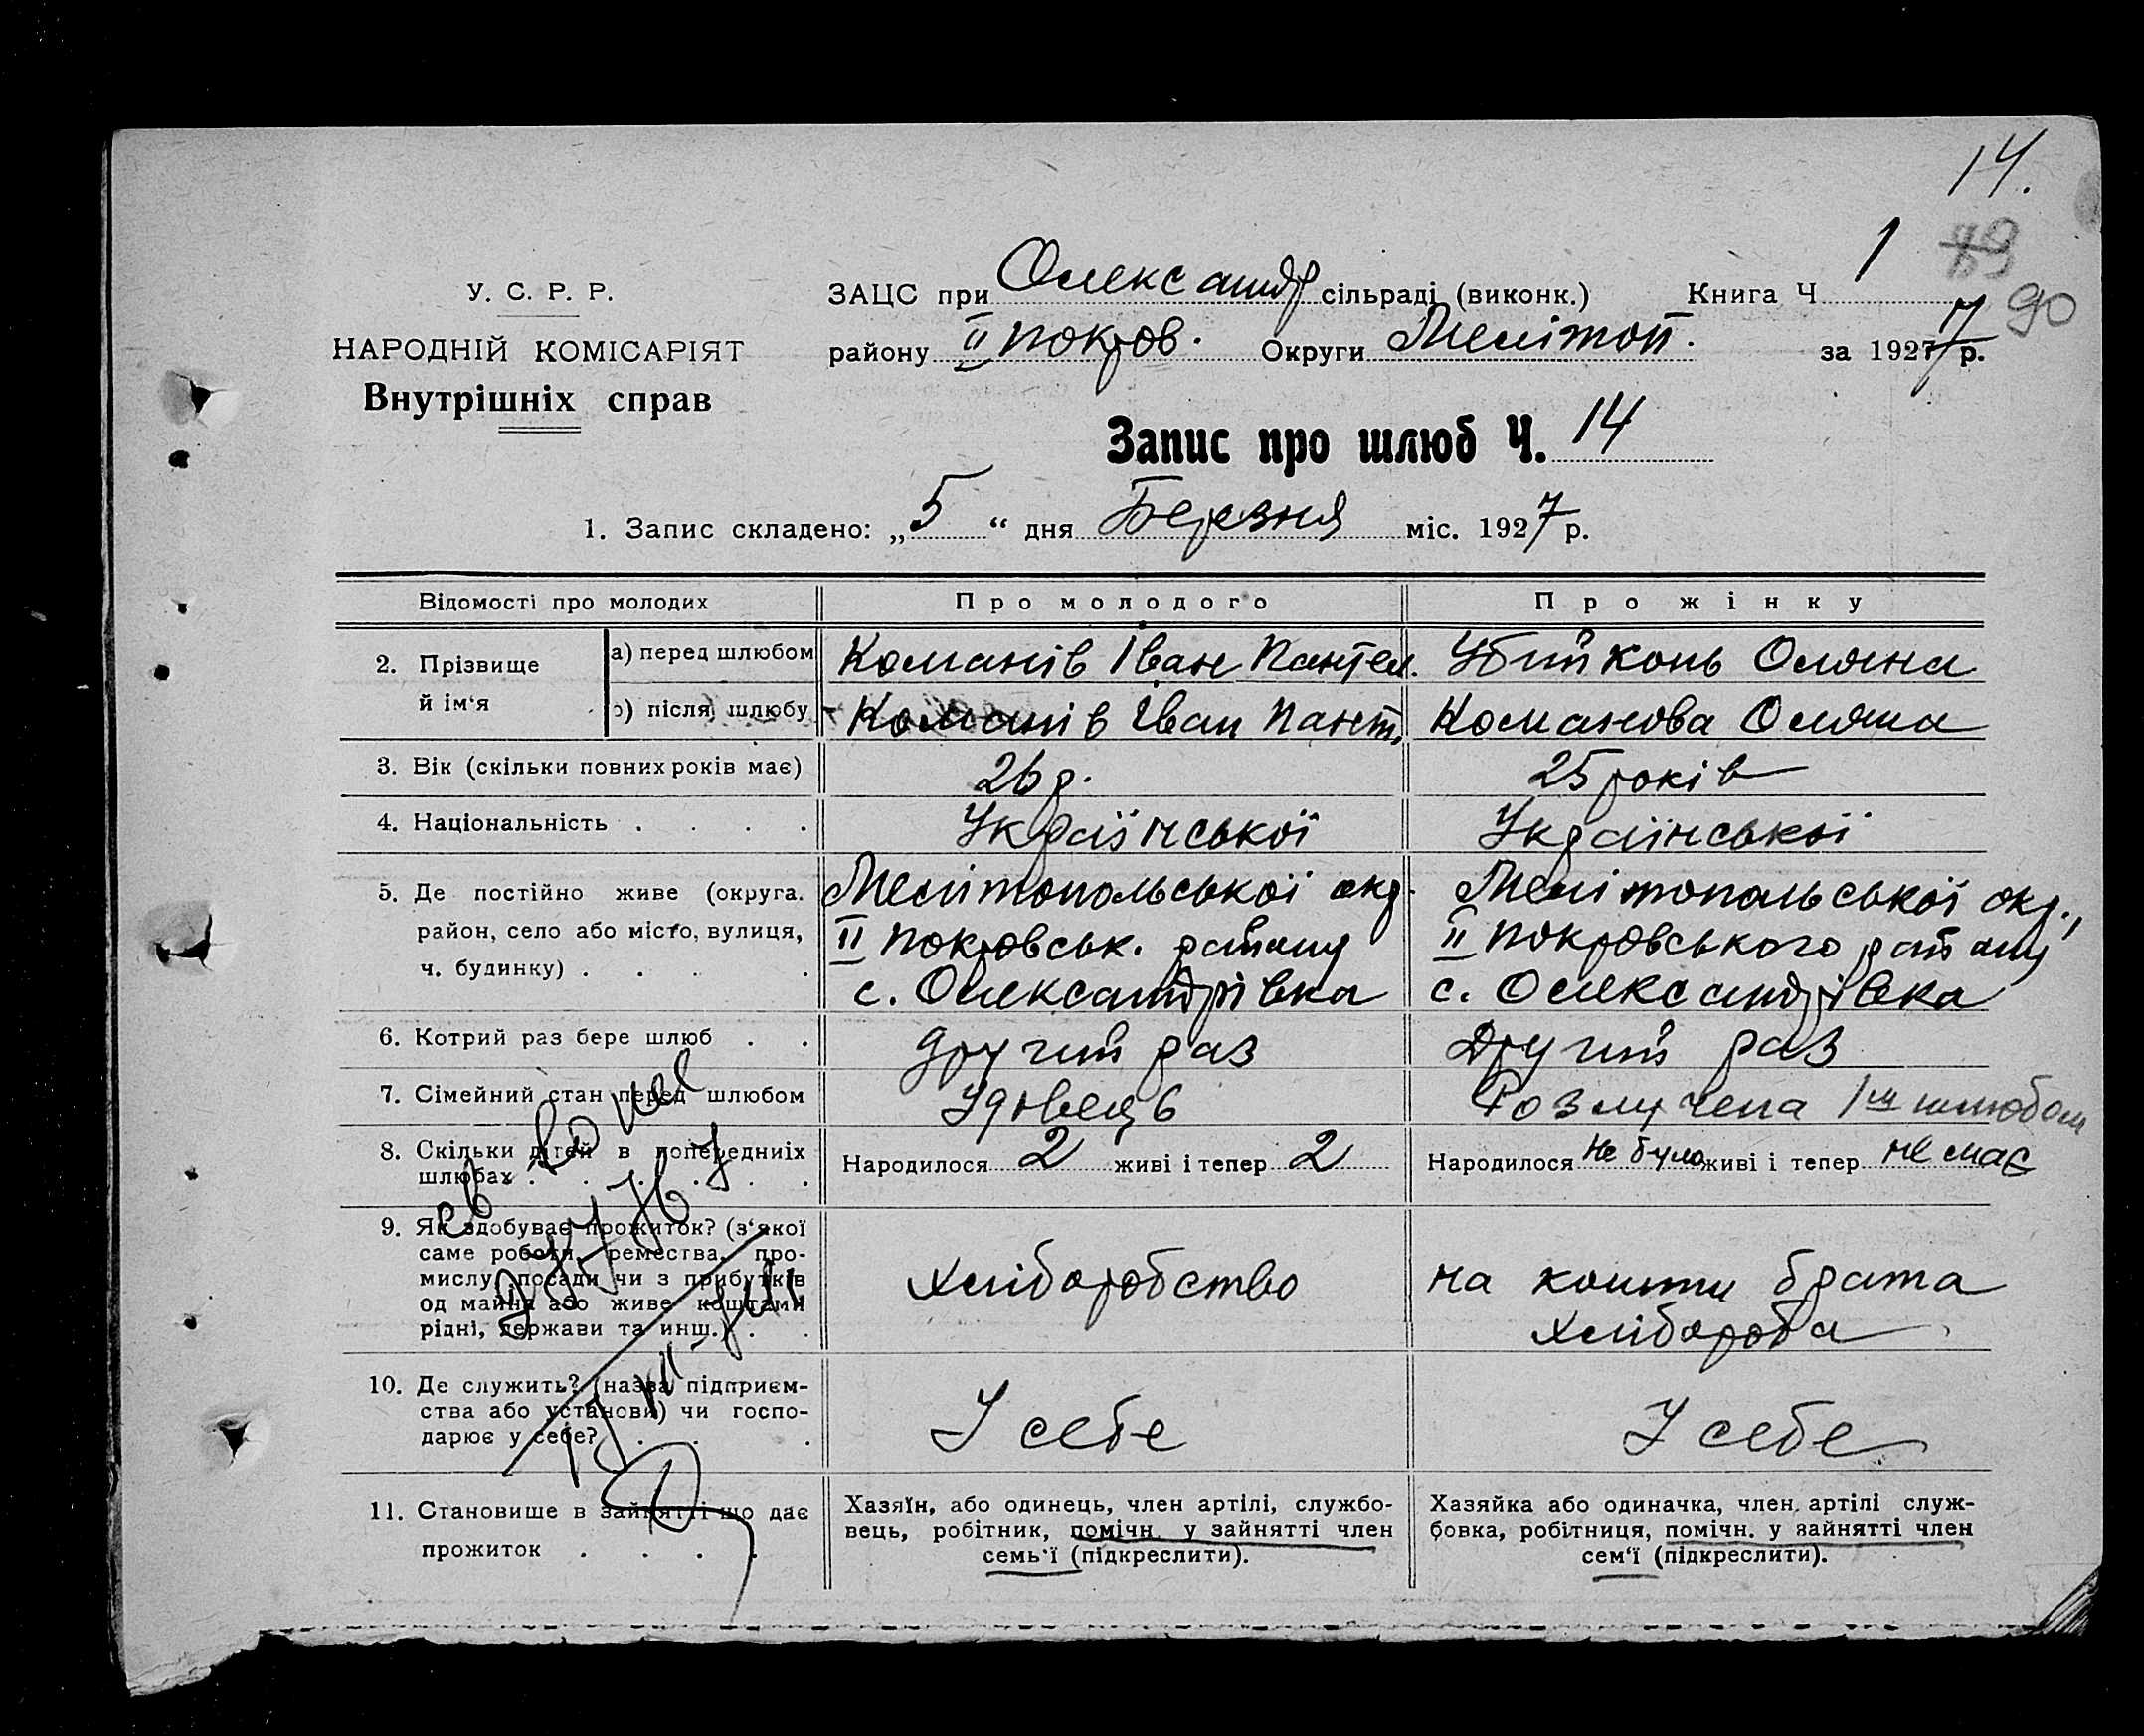 14.
1 89
У. С. Р. Р. ЗАЦС при Олександр сільраді (виконк.) Книга Ч
90
НАРОДНІЙ КОМІСАРІЯТ району II покров. Округи Мелітоп. за 1927 р.
Внутрішніх справ
Запис про шлюб Ч. 14
1. Запис складено: „5“ дня Березня міс. 1927 р.
Відомості про молодих Про молодого Про жінку
2. Прізвище й ім‘я а) перед шлюбом Команів Іван Пантел. Убийконь Оляна
б) після шлюбу Команів Іван Пант. Команова Оляна
3. Вік (скільки повних років має) 26 р. 25 років
4. Національність . . . . Української Української
5. Де постійно живе (округа. Мелітопольської окр. Мелітопольської окр.,
район, село або місто, вулиця, II покровськ. району II покровського району
ч. будинку) . . . . с. Олександрівка с. Олександрівка
6. Котрий раз бере шлюб . . другий раз Другий раз
7. Сімейний стан перед шлюбом Удовець Розлучена 1м шлюбом
8. Скільки дітей в попередниіх Народилося 2 живі і тепер 2 Народилося не було живі і тепер не має
шлюбах . . . . . .
9. Як здобуває прожиток? (з‘якої
саме роботи, ремества, про-
мислу, посади чи з прибутків Хліборобство на кошти брата
од майна або живе коштами
рідні, держави та инш.) . . хлібороба
10. Де служить? (назва підприєм-
ства або установи) чи госпо- У себе У себе
дарює у себе? . . . .
11. Становище в зайнятті що дає Хазяїн, або одинець, член артілі, службо- Хазяйка або одиначка, член артілі служ-
вець, робітник, помічн. у зайнятті член бовка, робітниця, помічн. у зайнятті член
прожиток . . . . семь‘ї (підкреслити). сем‘ї (підкреслити).